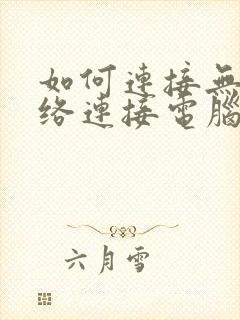 如何連接無
络連接電腦
六月雪